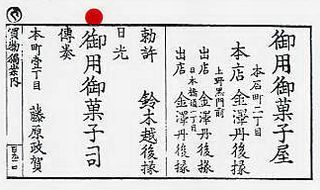 御用御菓子屋
本石町二丁目
本店 金澤丹後掾
上野黒門前
出店 金澤丹後掾
日本橋 二丁目
出店 金澤丹後掾
勅許 鈴木越後掾
日光
御用御菓子司
傳奏
本町壹丁目 藤原政賀
買物獨案内